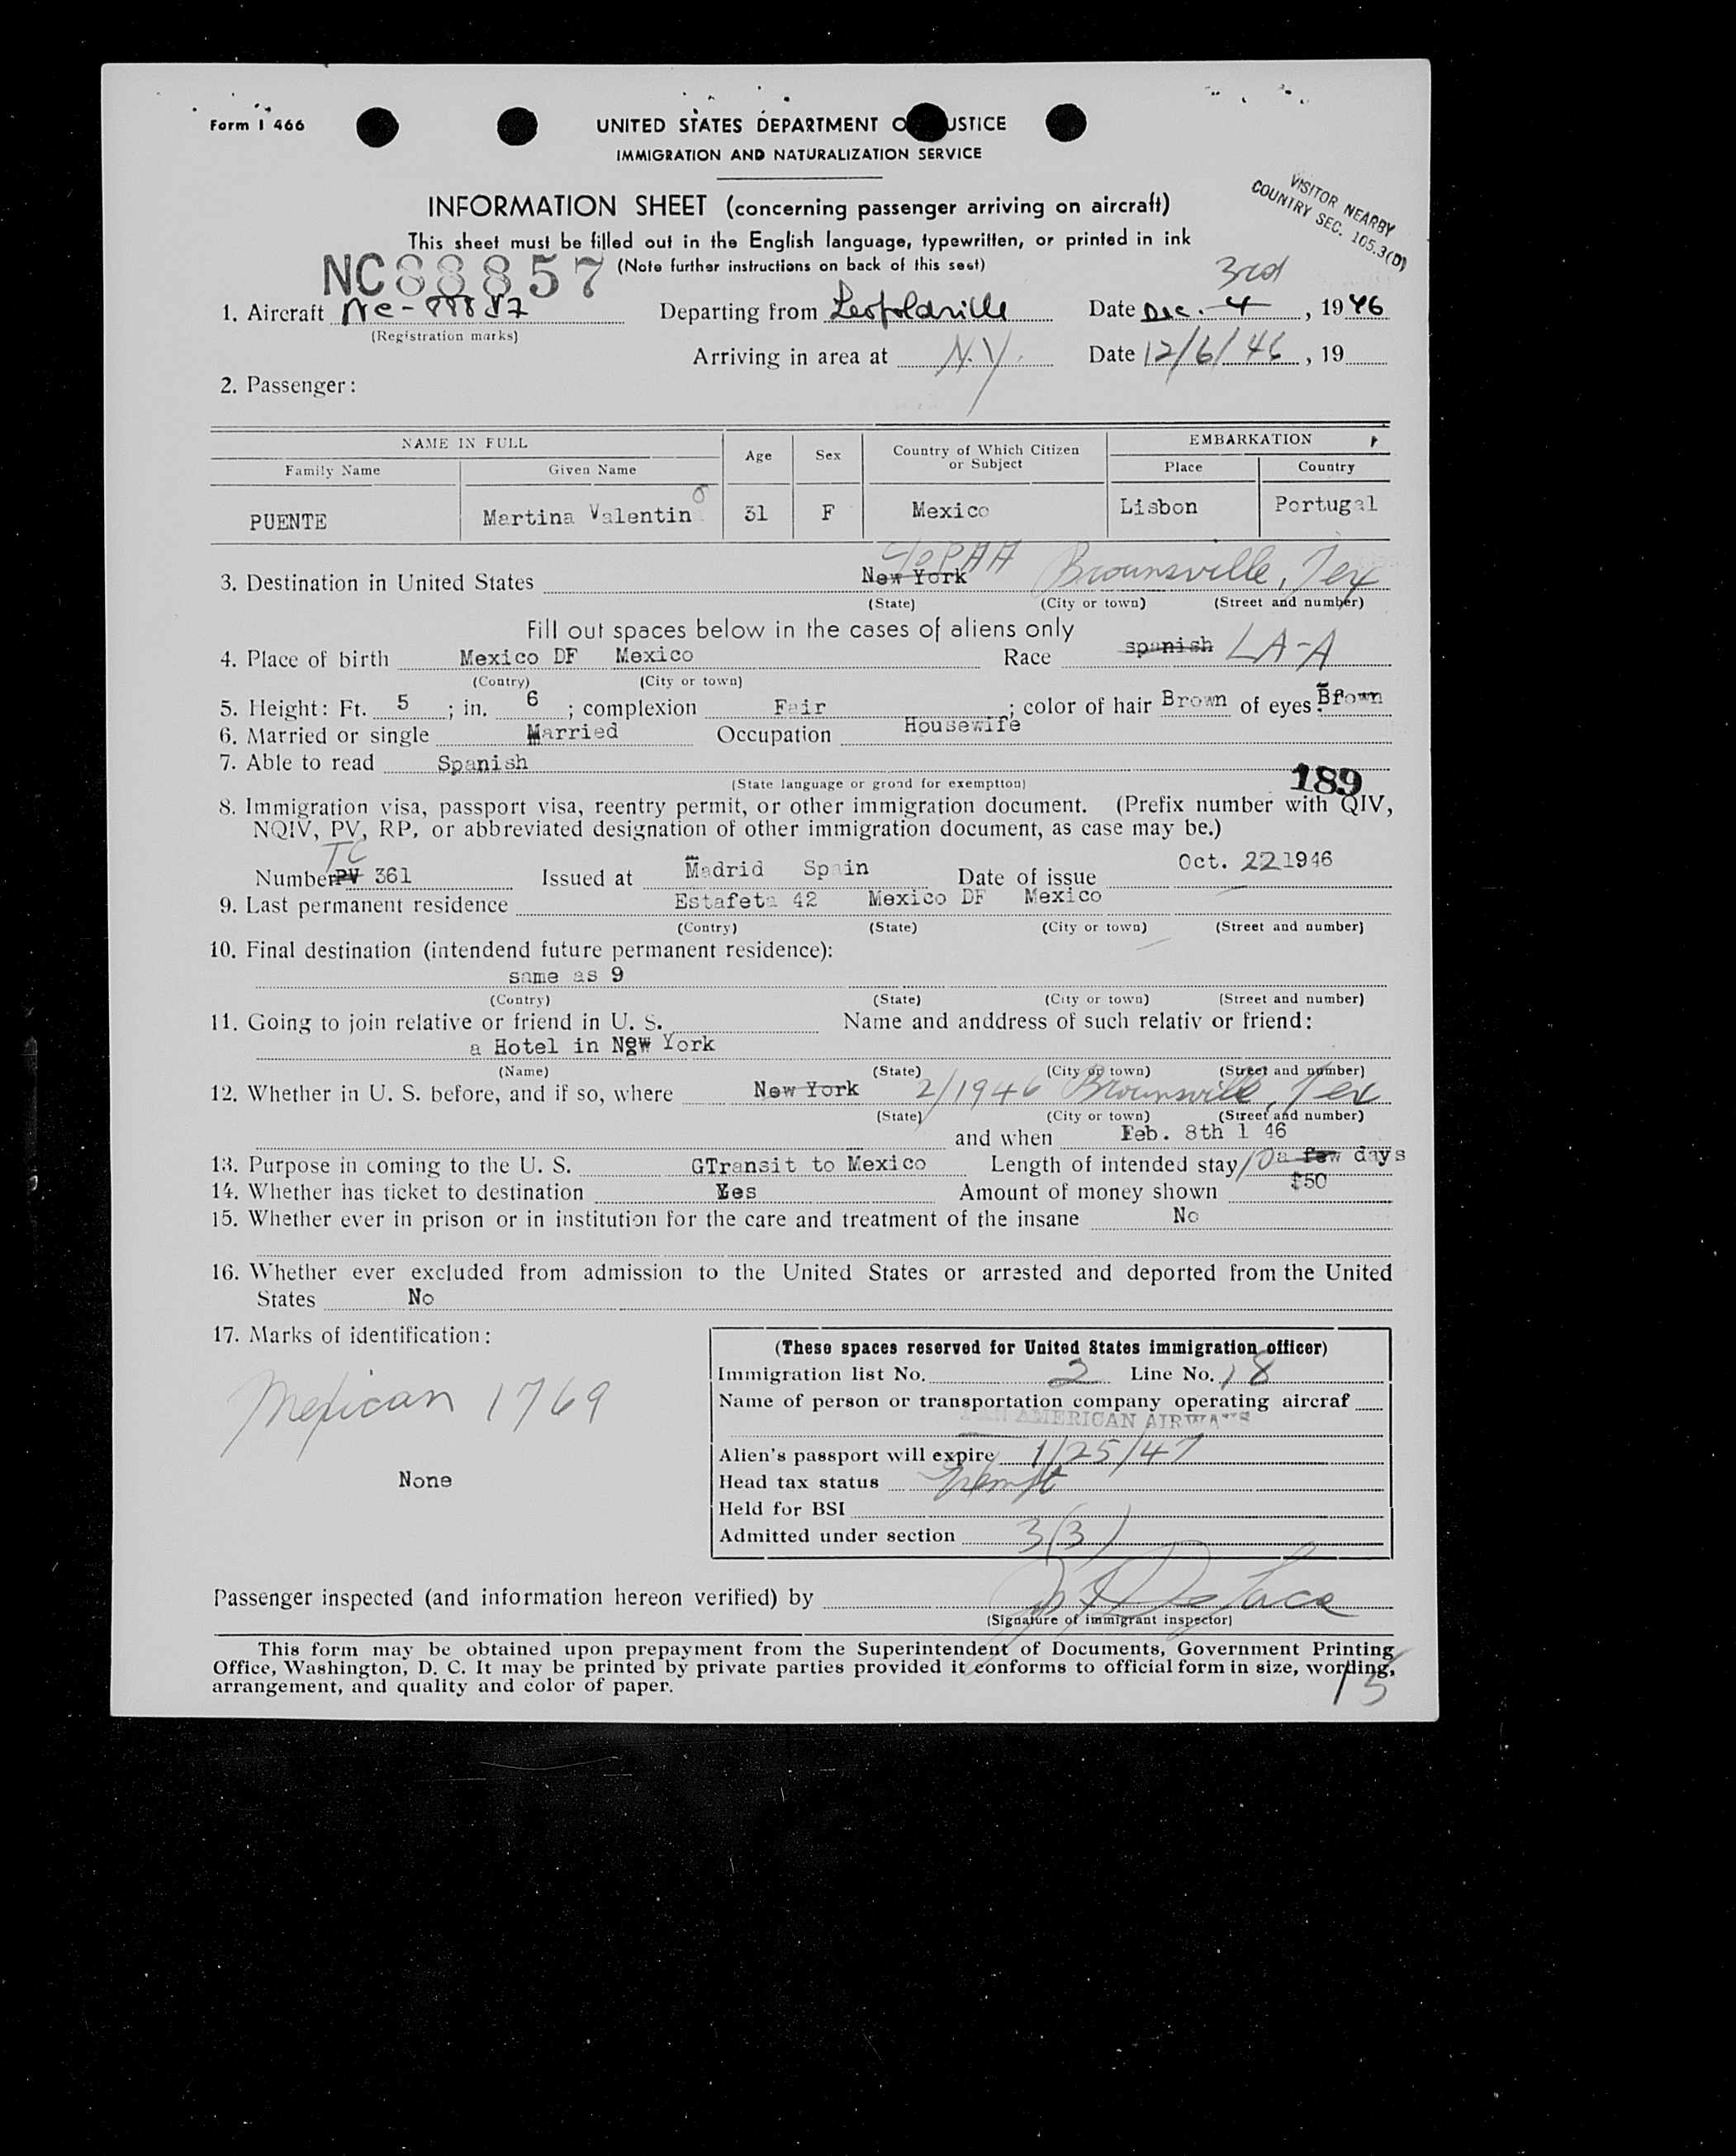 Form I 466
UNITED STATES DEPARTMENT O USTICE
IMMIGRATION AND NATURALIZATION SERVICE
VISITOR NEARBY
COUNTRY SEC. 165.3(D)
INFORMATION SHEET (concerning passenger arriving on aircraft)
This sheet must be filled out in the English language, typewritten, or printed in ink
NC88857 (Note further instructions on back of this seet)
3rd
1. Aircraft NC-88857 Departing from Leopoldville Date Dec. 4, 1946
(Registration marks)
Arriving in area at N.Y. Date 12/6/46, 19
2. Passenger:
NAME IN FULL Age Sex Country of Which Citizen or Subject EMBARKATION
Family Name Given Name Place Country
PUENTE Martina Valentin 31 F Mexico Lisbon Portugal
c/o PAA
3. Destination in United States New York Brownsville, Tex
(State) (City or town) (Street and number)
Fill out spaces below in the cases of aliens only
4. Place of birth Mexico DF Mexico Race spanish LA-A
(Contry) (City or town)
5. Height: Ft. 5; in. 6; complexion Fair; color of hair Brown of eyes Brown
6. Married or single Married Occupation Housewife
7. Able to read Spanish
(State language or grond for exemption)
189
8. Immigration visa, passport visa, reentry permit, or other immigration document. (Prefix number with QIV,
NQIV, PV, RP, or abbreviated designation of other immigration document, as case may be.)
TC
Number PV 361 Issued at Madrid Spain Date of issue Oct. 22 1946
9. Last permanent residence Estafeta 42 Mexico DF Mexico
(Contry) (State) (City or town) (Street and number)
10. Final destination (intendend future permanent residence):
same as 9
(Contry) (State) (City or town) (Street and number)
11. Going to join relative or friend in U. S. Name and anddress of such relativ or friend:
a Hotel in New York
(Name) (State) (City or town) (Street and number)
12. Whether in U. S. before, and if so, where New York 2/1946 Brownsville, Tex
(State) (City or town) (Street and number)
and when Feb. 8th 1 46
13. Purpose in coming to the U. S. GTransit to Mexico Length of intended stay 10 a few days
14. Whether has ticket to destination Yes Amount of money shown $50
15. Whether ever in prison or in institution for the care and treatment of the insane No
16. Whether ever excluded from admission to the United States or arrested and deported from the United
States No
17. Marks of identification:
Mexican 1769
None
(These spaces reserved for United States immigration officer)
Immigration list No. 2 Line No. 18
Name of person or transportation company operating aircraf
PAN AMERICAN AIRWAYS
Alien's passport will expire 1/25/47
Head tax status Exempt
Held for BSI
Admitted under section 3(3)
Passenger inspected (and information hereon verified) by
(Signature of immigrant inspector)
This form may be obtained upon prepayment from the Superintendent of Documents, Government Printing
Office, Washington, D. C. It may be printed by private parties provided it conforms to official form in size, wording,
arrangement, and quality and color of paper.
15